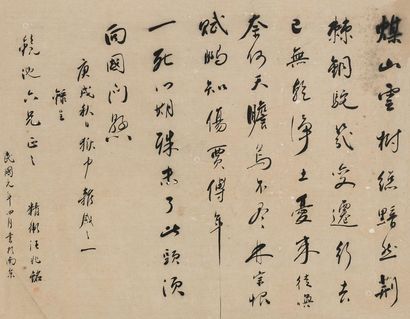 煤山雲樹總黯然荊
棘銅駝幾變遷行去
已無乾淨土憂來徒喚
奈何天瞻烏不盡林宗恨
賦鵩知傷賈傅年
一死心期殊未了此頭須
向國門懸
庚戌秋日獄中雜感之一
錄呈
鏡池六兄正之 精衛汪兆銘
民國元年四月書於南京